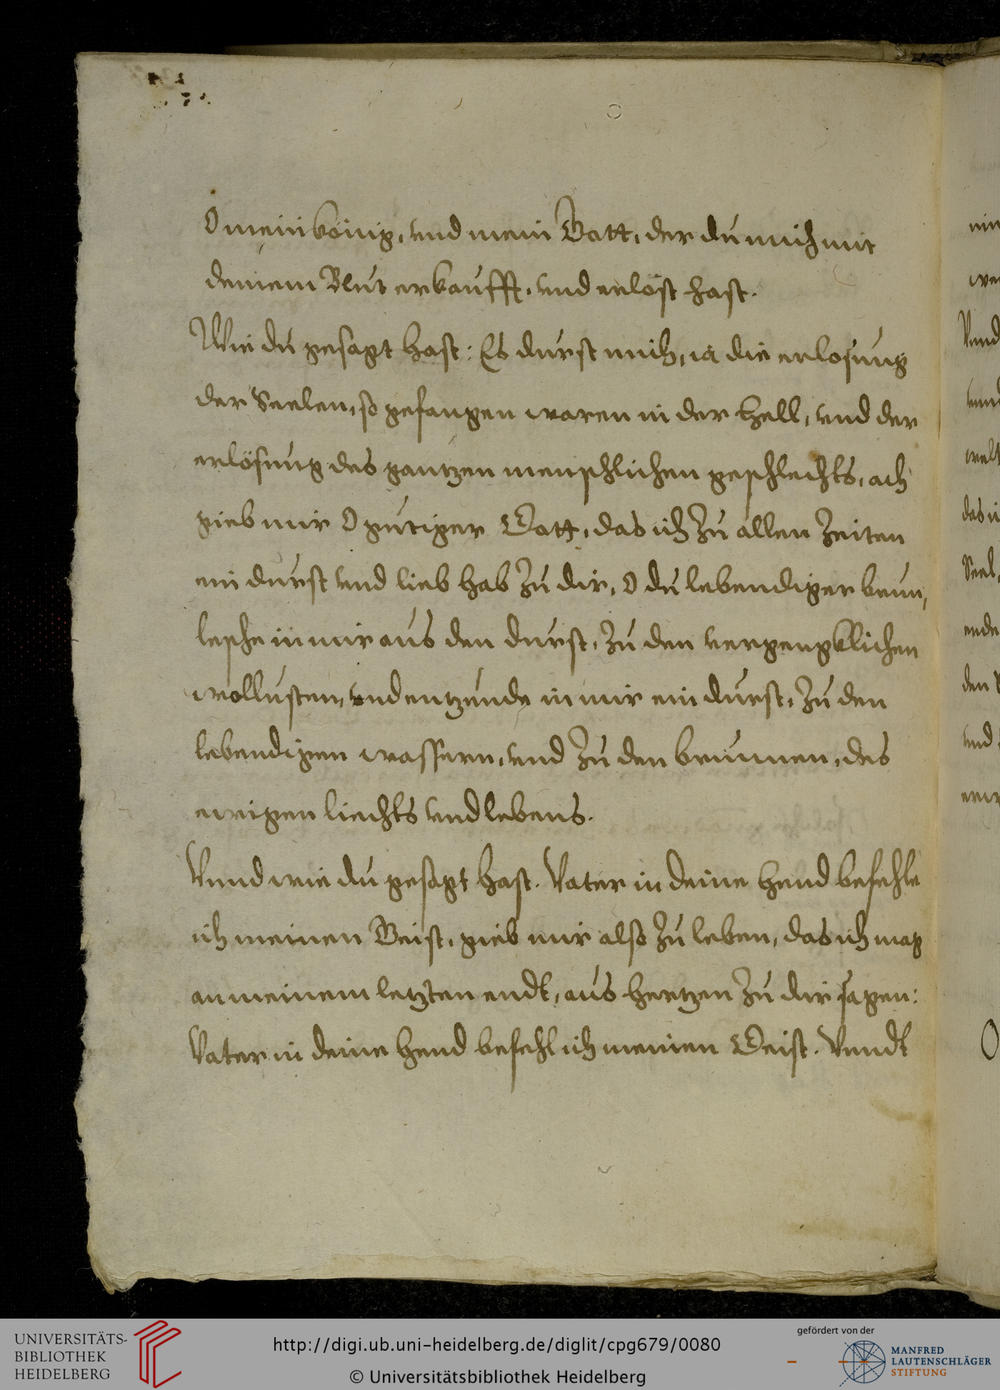 O mein könig, und mein Gott, der du mich mit
deinem Blut erkaufft, und erlöst hast.
Wie du gesagt hast: Es durst mich, ia die erlosung
der Seelen, so gefangen waren in der hell, und der
erlösung des gantzen menschlichen geschlechts, ach
gieb mir O gutiger Gott, das ich zu allen zeiten
ein durst und lieb hab zu dir, O du lebendiger brun,
lesche in mir aus den durst, zu den vergengklichen
wollusten, und entzunde in mir ein durst, zu den
lebendigen wassern, und zu den brunnen, des
ewigen liechts und lebens.
Vnnd wie du gesagt hast. Vater in deine hend befehle
ich meinen Geist, gieb mir also zu leben, das ich mag
an meinem letzten endt, aus hertzen zu dir sagen:
Vater in deine hend befehl ich meinen Geist. Vnndt
UNIVERSITÄTS-
BIBLIOTHEK
HEIDELBERG
http://digi.ub.uni-heidelberg.de/diglit/cpg679/0080
© Universitätsbibliothek Heidelberg
gefördert von der
MANFRED
LAUTENSCHLÄGER
STIFTUNG